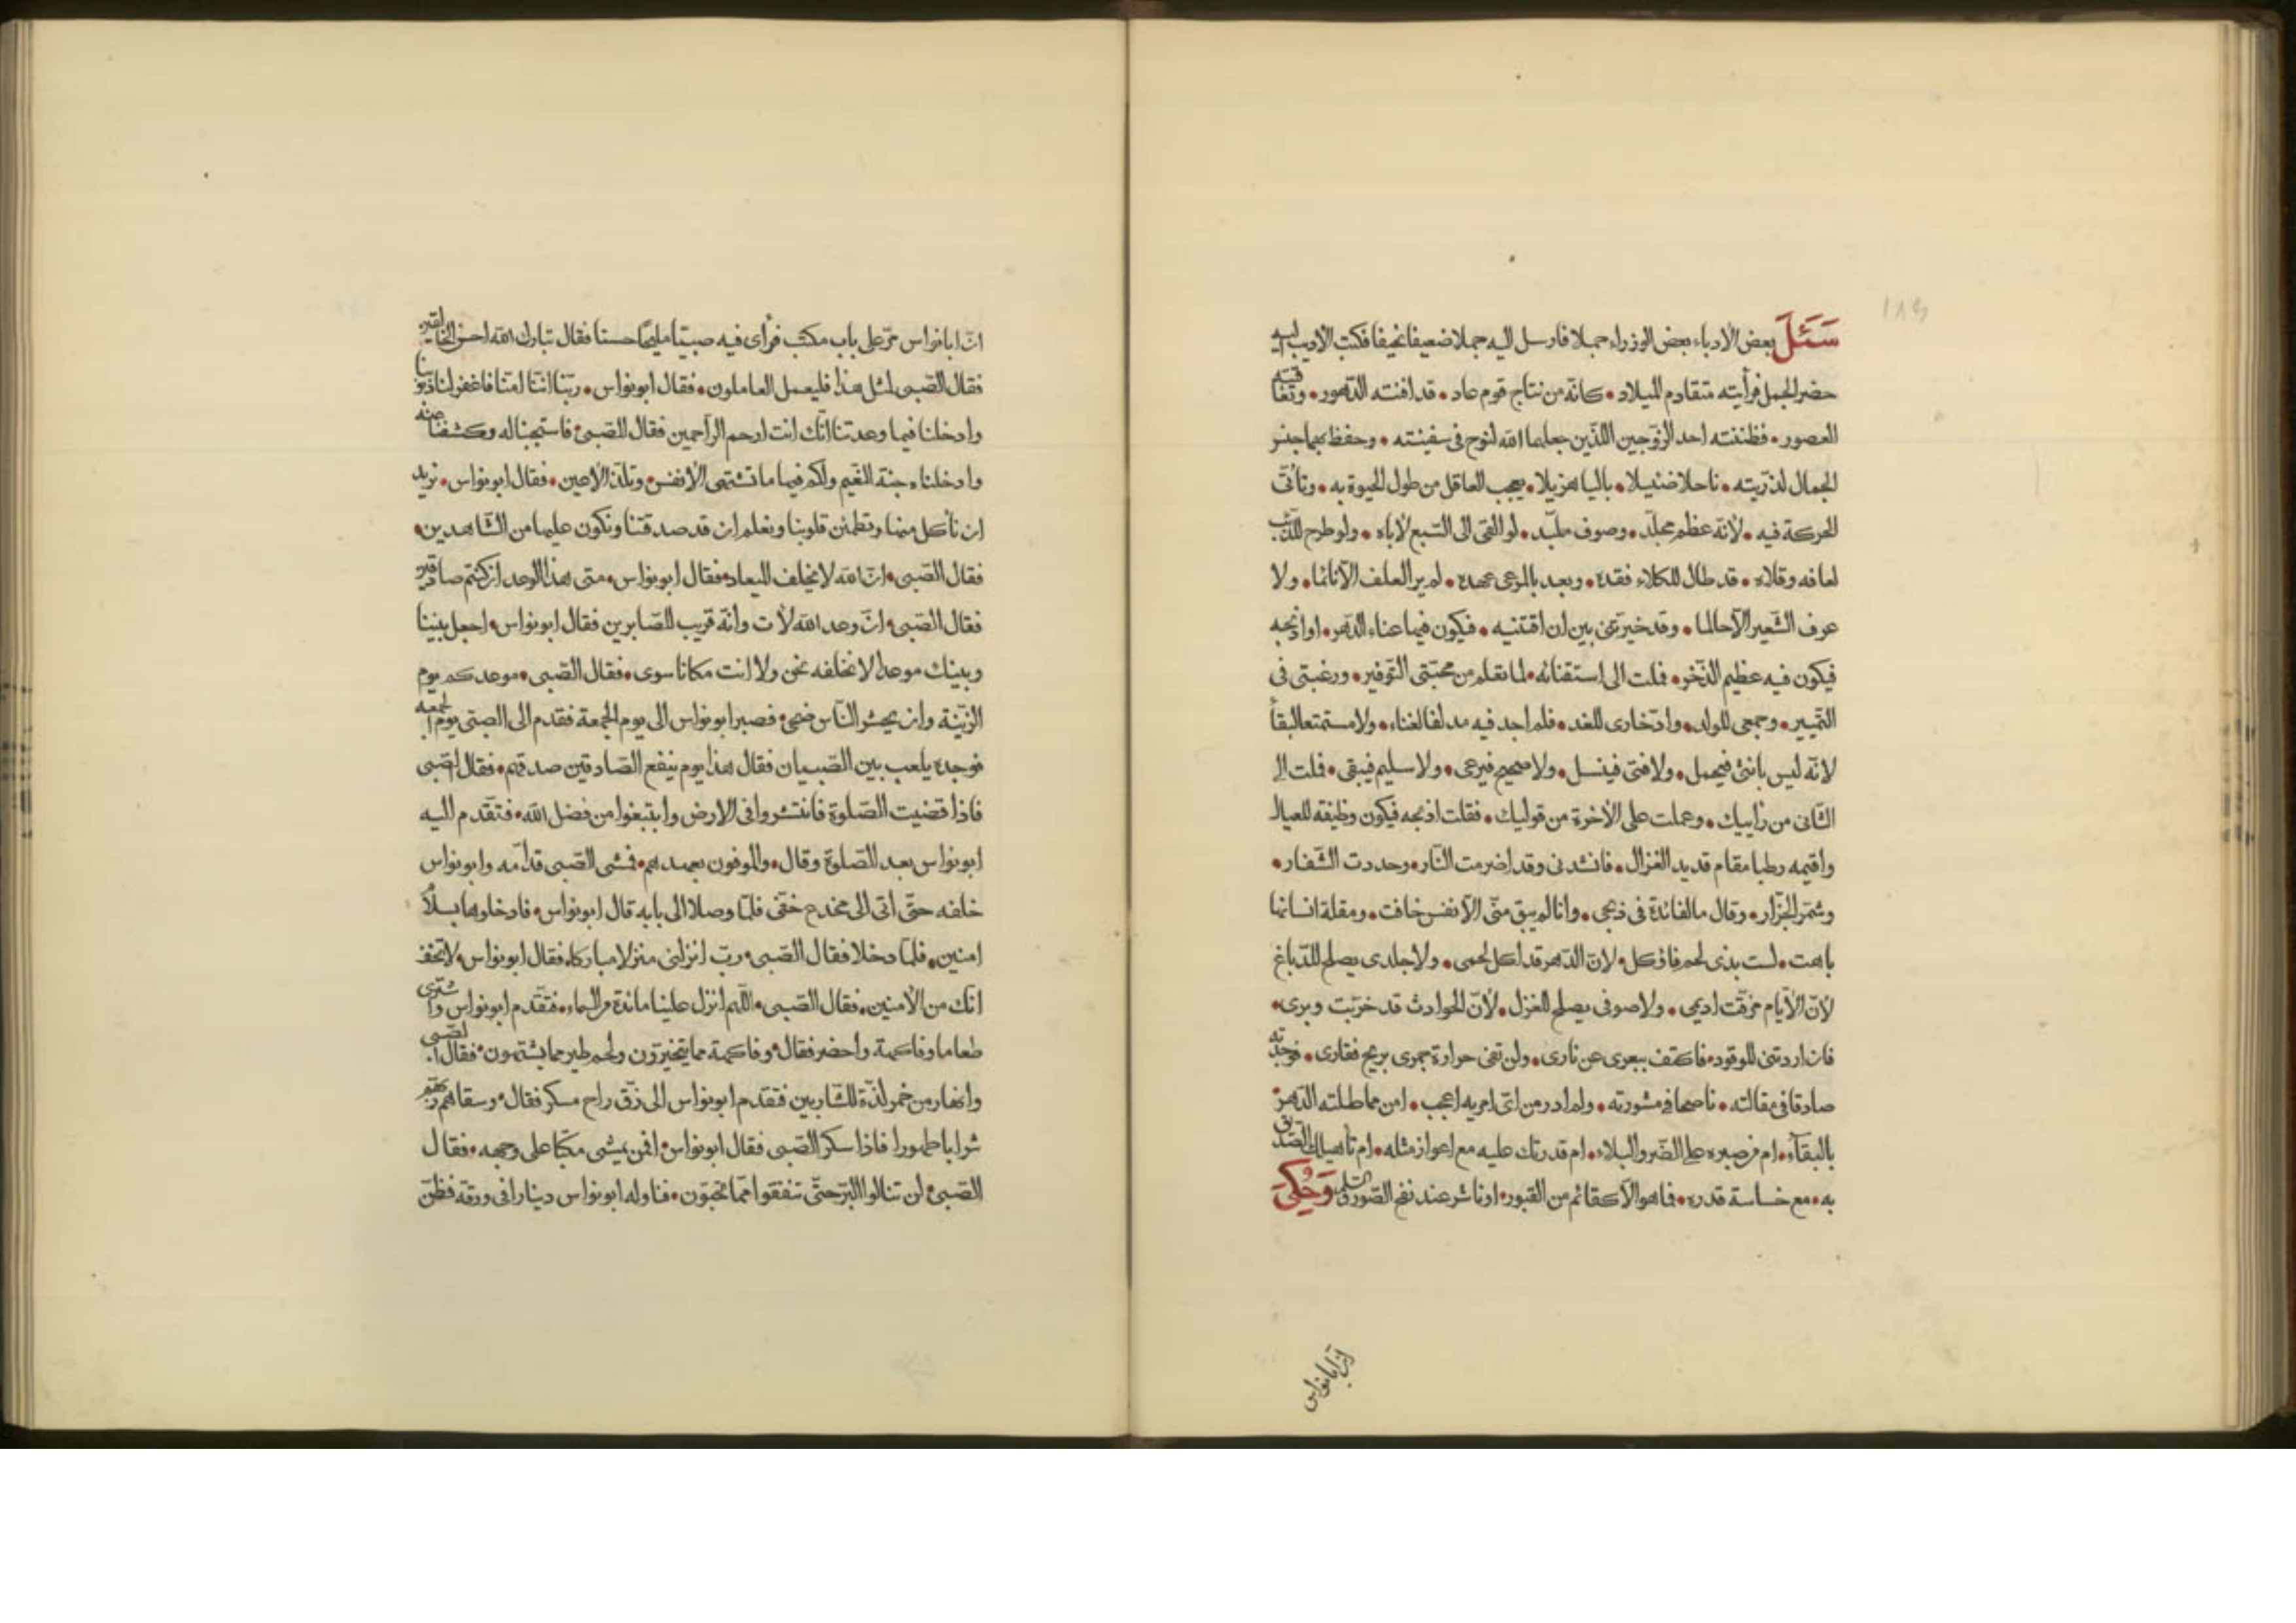 ١٨٣
سَئَلَ بعض الأدباء بعض الوزراء جملا فارسل اليه جملا ضعيفا نحيفا فكتب الأديب اليه
حضر الجمل فرأيته متقادم الميلاد • كانّه من نتاج قوم عاد • قد افنته الدّهور • وتعاقبته
العصور • فظننته احد الزّوجين اللّذين جعلهما الله لنوح فى سفينته • وحفظ بهما جنس
الجمال لذرّيته • ناحلا ضئيلا • باليا هزيلا • يعجب العاقل من طول الحيوة به • وتأتّى
الحركة فيه • لأنّه عظم مجلّد • وصوف ملبّد • لو القى الى السّبع لأباه • ولو طرح للذّئب
لعافه وقلاه • قد طال للكلاء فقده • وبعد بالمرعى عهده • لم ير العلف الّا نائما • ولا
عرف الشّعير الّا حالما • وقد خيّرتنى بين ان اقتنيه • فيكون فيها عناء الدّهر • او اذبحه
فيكون فيه عظيم الذّخر • فملت الى استقنائه • لما تعلم من محبّتى التّوفير • ورغبتى فى
التّمير • وجمعى للولد • وادّخارى للغد • فلم اجد فيه مدلفا لغناء • ولا مستمتعا لبقأ
لانّه ليس بانثى فيحمل • ولا فتى فينسل • ولا صحيح فيرعى • ولا سليم فيبقى • فملت الى
الثّانى من رأييك • وعملت على الأخرة من قوليك • فقلت اذبحه فيكون وظيفة للعيال
واقيمه رطبا مقام قديد الغزال • فانشدنى وقد اضرمت النّار • وحددت الشّفار •
وشمّر الجزّار • وقال ما الفائدة فى ذبحى • وانا لم يبق منّى الّا نفس خافت • ومقلة انسانها
باهت • لست بذى لحم فاؤكل • لانّ الدّهر قد اكل لحمى • ولا جلدى يصلح للدّباغ
لأنّ الأيّام مزّقت اديمى • ولا صوفى يصلح للغزل • لأنّ الحوادث قد خرّبت وبرى •
فان اردتنى للوقود • فاكتف ببعرى عن نارى • ولن تفى حرارة جمرى بريح فقارى • فوجدته
صادقا فى مقالته • ناصحا فى مشورته • ولم ادر من اىّ امريه اعجب • امن مماطلته الدّهر
بالبقآء • ام من صبره على الضّر والبلاء • ام قدرتك عليه مع اعواز مثله • ام تأهيلك الصّديق
به • مع خساسة قدره • فما هو الّا كقائم من القبور • او ناشر عند نفخ الصّور والسّلم وَحُكِىَ
انّ ابا نواس
انّ ابا نواس مرّ على باب مكتب فرأى فيه صبيّا مليحًا حسنا فقال تبارك الله احسن الخالقين
فقال الصّبى لمثل هذا فليعمل العاملون • فقال ابونواس • ربّنا انّنا امنّا فاغفر لنا ذنوبنا
وادخلنا فيما وعدتنا انّك انت ارحم الرّاحمين فقال للصّبى • فاستجبنا له وكشفنا عنه
وادخلناه جنة النّعيم ولكم فيها ما تشتهى الأنفس • وتلذّ الأعين • فقال ابونواس • نريد
ان نأكل منها وتطمئن قلوبنا ونعلم ان قد صدقتنا ونكون عليها من الشّاهدين •
فقال الصّبى • انّ الله لا يخلف الميعاد • فقال ابونواس • متى هذا الوعد ان كنتم صادقين
فقال الصّبى • انّ وعد الله لأت وانّه قريب للصّابرين فقال ابونواس • اجعل بيننا
وبينك موعدا لا نخلفه نحن ولا انت مكانا سوى • فقال الصّبى • موعدكم يوم
الزّينة وان يحشر النّاس ضحى • فصبر ابونواس الى يوم الجمعة فقدم الى الصبّى يوم الجمعه
فوجده يلعب بين الصّبيان فقال هذا يوم ينفع الصّادقين صدقهم • فقال الصّبى
فاذا قضيت الصّلوة فانتشروا فى الارض وابتبغوا من فضل الله • فتقدّم اليه
ابونواس بعد الصّلوة وقال • والموفون بعهدهم • فمشى الصّبى قدّامه وابونواس
خلفه حتّى اتى الى مخدع خفى فلمّا وصلا الى بابه قال ابونواس • فادخلوها بسلأ
امنين • فلمّا دخلا فقال الصّبى • ربّ انزلنى منزلا مباركا • فقال ابونواس • لا تخف
انّك من الأمنين • فقال الصّبى • اللّهم انزل علينا مائدة من السماء • فتقدّم ابونواس واشترى
طعاما وفاكهة واحضر فقال • وفاكهة مما يتخيّرون ولحم طير مما يشتهون • فقال الصّبى
وانهار من خمر لذّة للشّاربين فتقدّم ابونواس الى زقّ راح مسكر فقال • وسقاهم ربّهم
شرابا طهورا فاذا سكر الصّبى فقال ابونواس • افمن يمشى مكبّا على وجهه • فقال
الصّبى • لن تنالوا البرّ حتّى تنفقوا ممّا تحبّون • فناوله ابونواس دينارا فى ورقه فظنّ